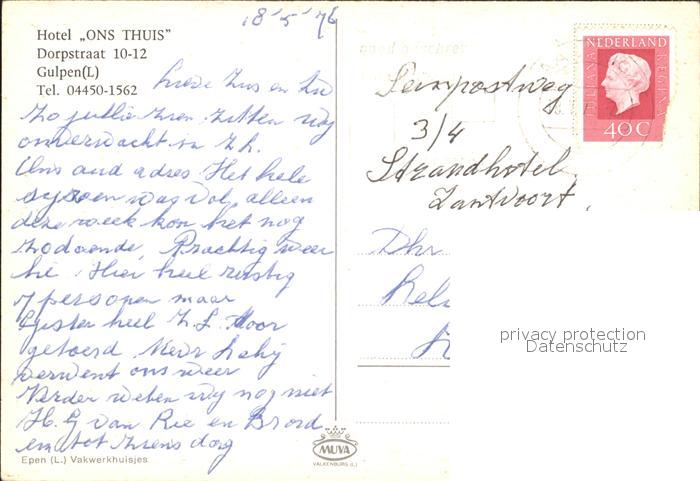 18-5-76
Hotel „ONS THUIS"
Dorpstraat 10-12
Gulpen(L)
Tel. 04450-1562
Lieve Zus en
Zo jullie zien zitten wij
onverwacht in Z.L.
Ons oud adres. Het hele
seizoen was vol, alleen
deze week kon het nog
zodoende. Prachtig weer
hie. Hier heel rustig
7 personen maar
Gisteren heel Z.L. door
getoerd. Mevr
verwent ons weer
Verder weten wij nog niet
H. G van Rie en Broed
en tot ziens dag
Epen (L.) Vakwerkhuisjes
MUVA
VALKENBURG (L.)
NEDERLAND
JULIANA REGINA
40 C
3/4
Strandhotel
Zantvoort.
Dhr
privacy protection
Datenschutz